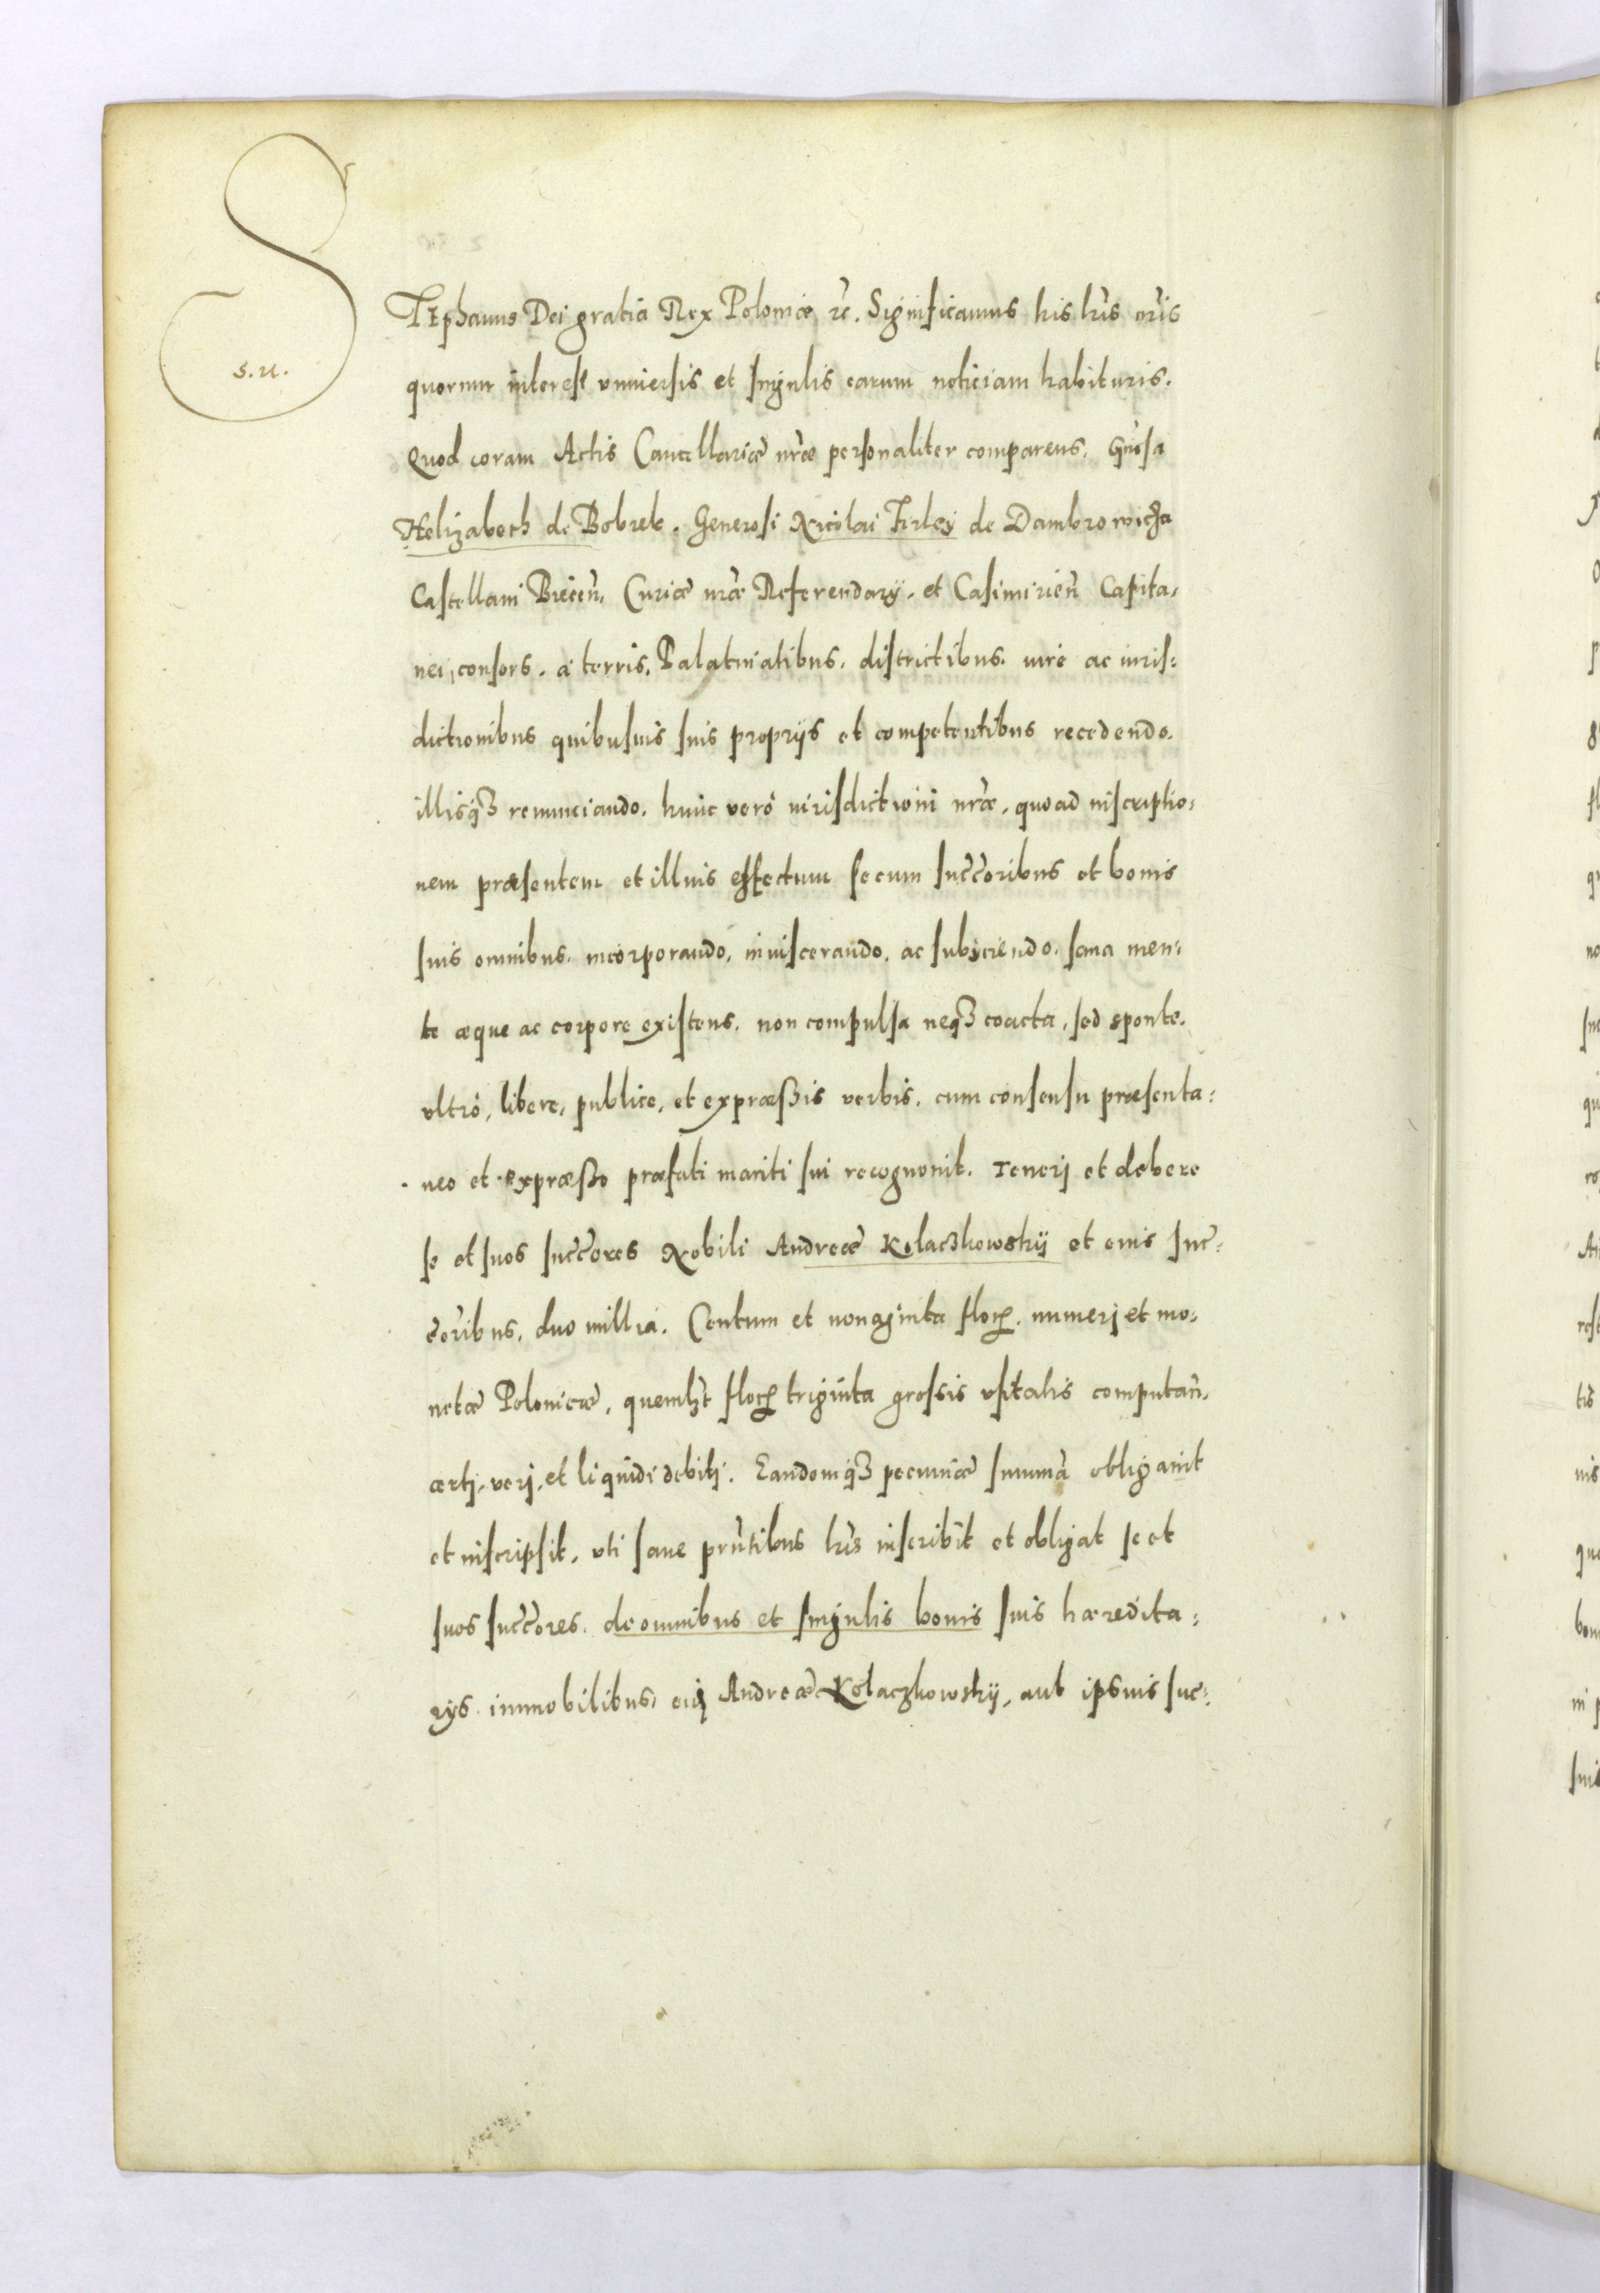 S
s. u.
TEphanus Dei gratia Rex Poloniæ rc. Significamus his lr̃is nr̃is
quorum interest vniuersis et singulis earum noticiam habituris.
Quod coram Actis Cancellariæ nr̃æ personaliter comparens, Gn̄osa
Helizabeth de Bobrek. Generosi Nicolai Firleÿ de Dambrowicza
Castellani Biecen̄. Curiæ nr̃æ Referendarÿ, et Casimirien̄ Capita=
nei, consors. à terris, Palatinatibus, districtibus, iure ac iuris=
dictionibus quibusuis suis proprÿs et competentibus recedendo.
illisqȝ renunciando, huic verò iurisdictioni nr̃æ, quoad inscriptio=
nem præsentem et illius effectum se cum succ̄oribus et bonis
suis omnibus, incorporando, inuiscerando, ac subÿciendo. sana men=
te æque ac corpore existens, non compulsa neqȝ coacta, sed sponte.
vltrò, libere, publice, et expræßis verbis, cum consensu præsenta=
neo et expræßo præfati mariti sui recognouit. Tenerj et debere
se et suos succ̄ores Nobili Andreæ Kolaczkowskÿ et eius suc=
c̄oribus, duo millia. Centum et nonaginta floꝝ. numerj et mo=
netæ Polonicæ, quemlꝫt floꝝ triginta grossis vsitatis computan̄.
certj, verj, et liquidi debitj. Eandemqȝ pecuniæ summā obligauit
et inscripsit, vti sane prn̄tibus lr̃is inscribit et obligat se et
suos succ̄ores. de omnibus et singulis bonis suis hæredita=
rÿs immobilibus, eidem Andreæ Kolaczkowskÿ, aut ipsius suc=